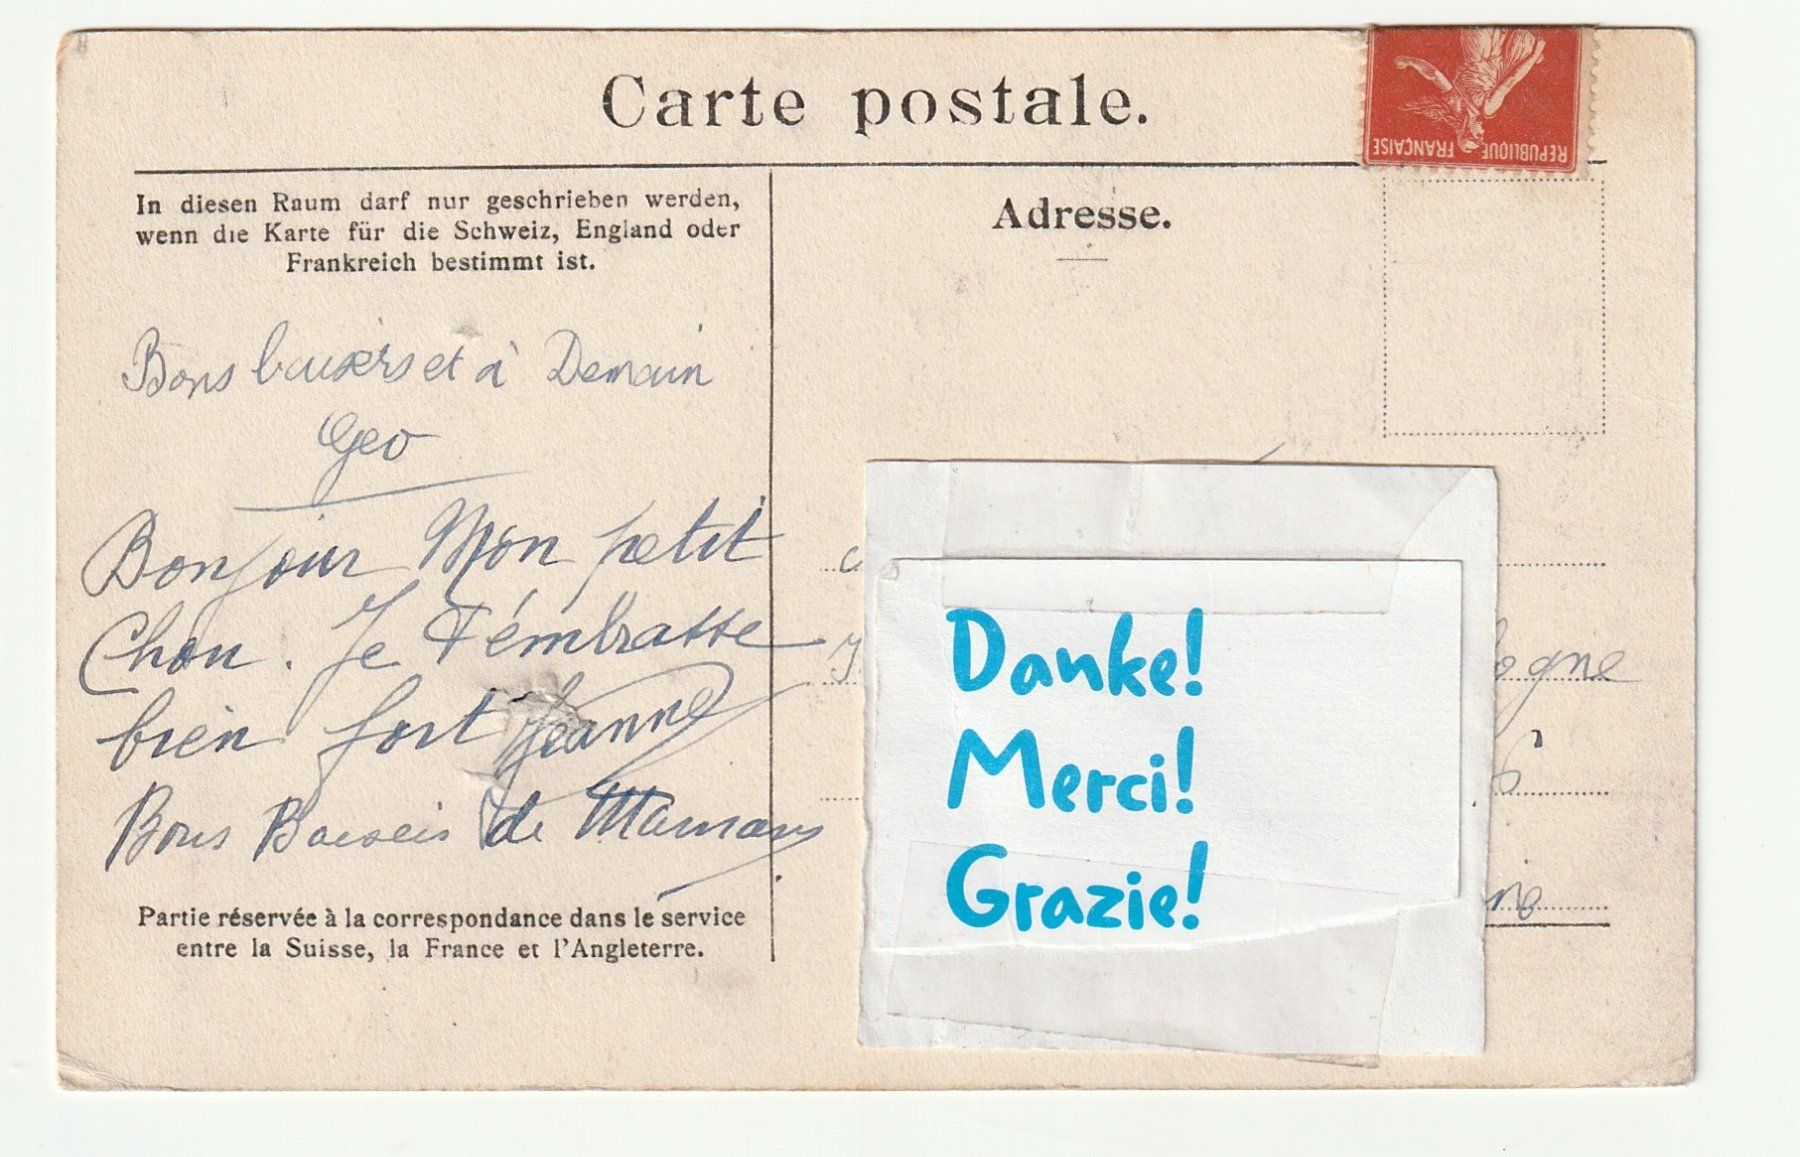 Carte postale.
In diesen Raum darf nur geschrieben werden,
wenn die Karte für die Schweiz, England oder
Frankreich bestimmt ist.
Bons baisers et à Demain
Geo
Bonjour Mon petit
Chou. Je t'émbrasse
bien fort Jeanne
Bons Baisers de Maman
Partie réservée à la correspondance dans le service
entre la Suisse, la France et l'Angleterre.
REPUBLIQUE FRANÇAISE
Adresse.
ogne
Danke!
Merci!
Grazie!